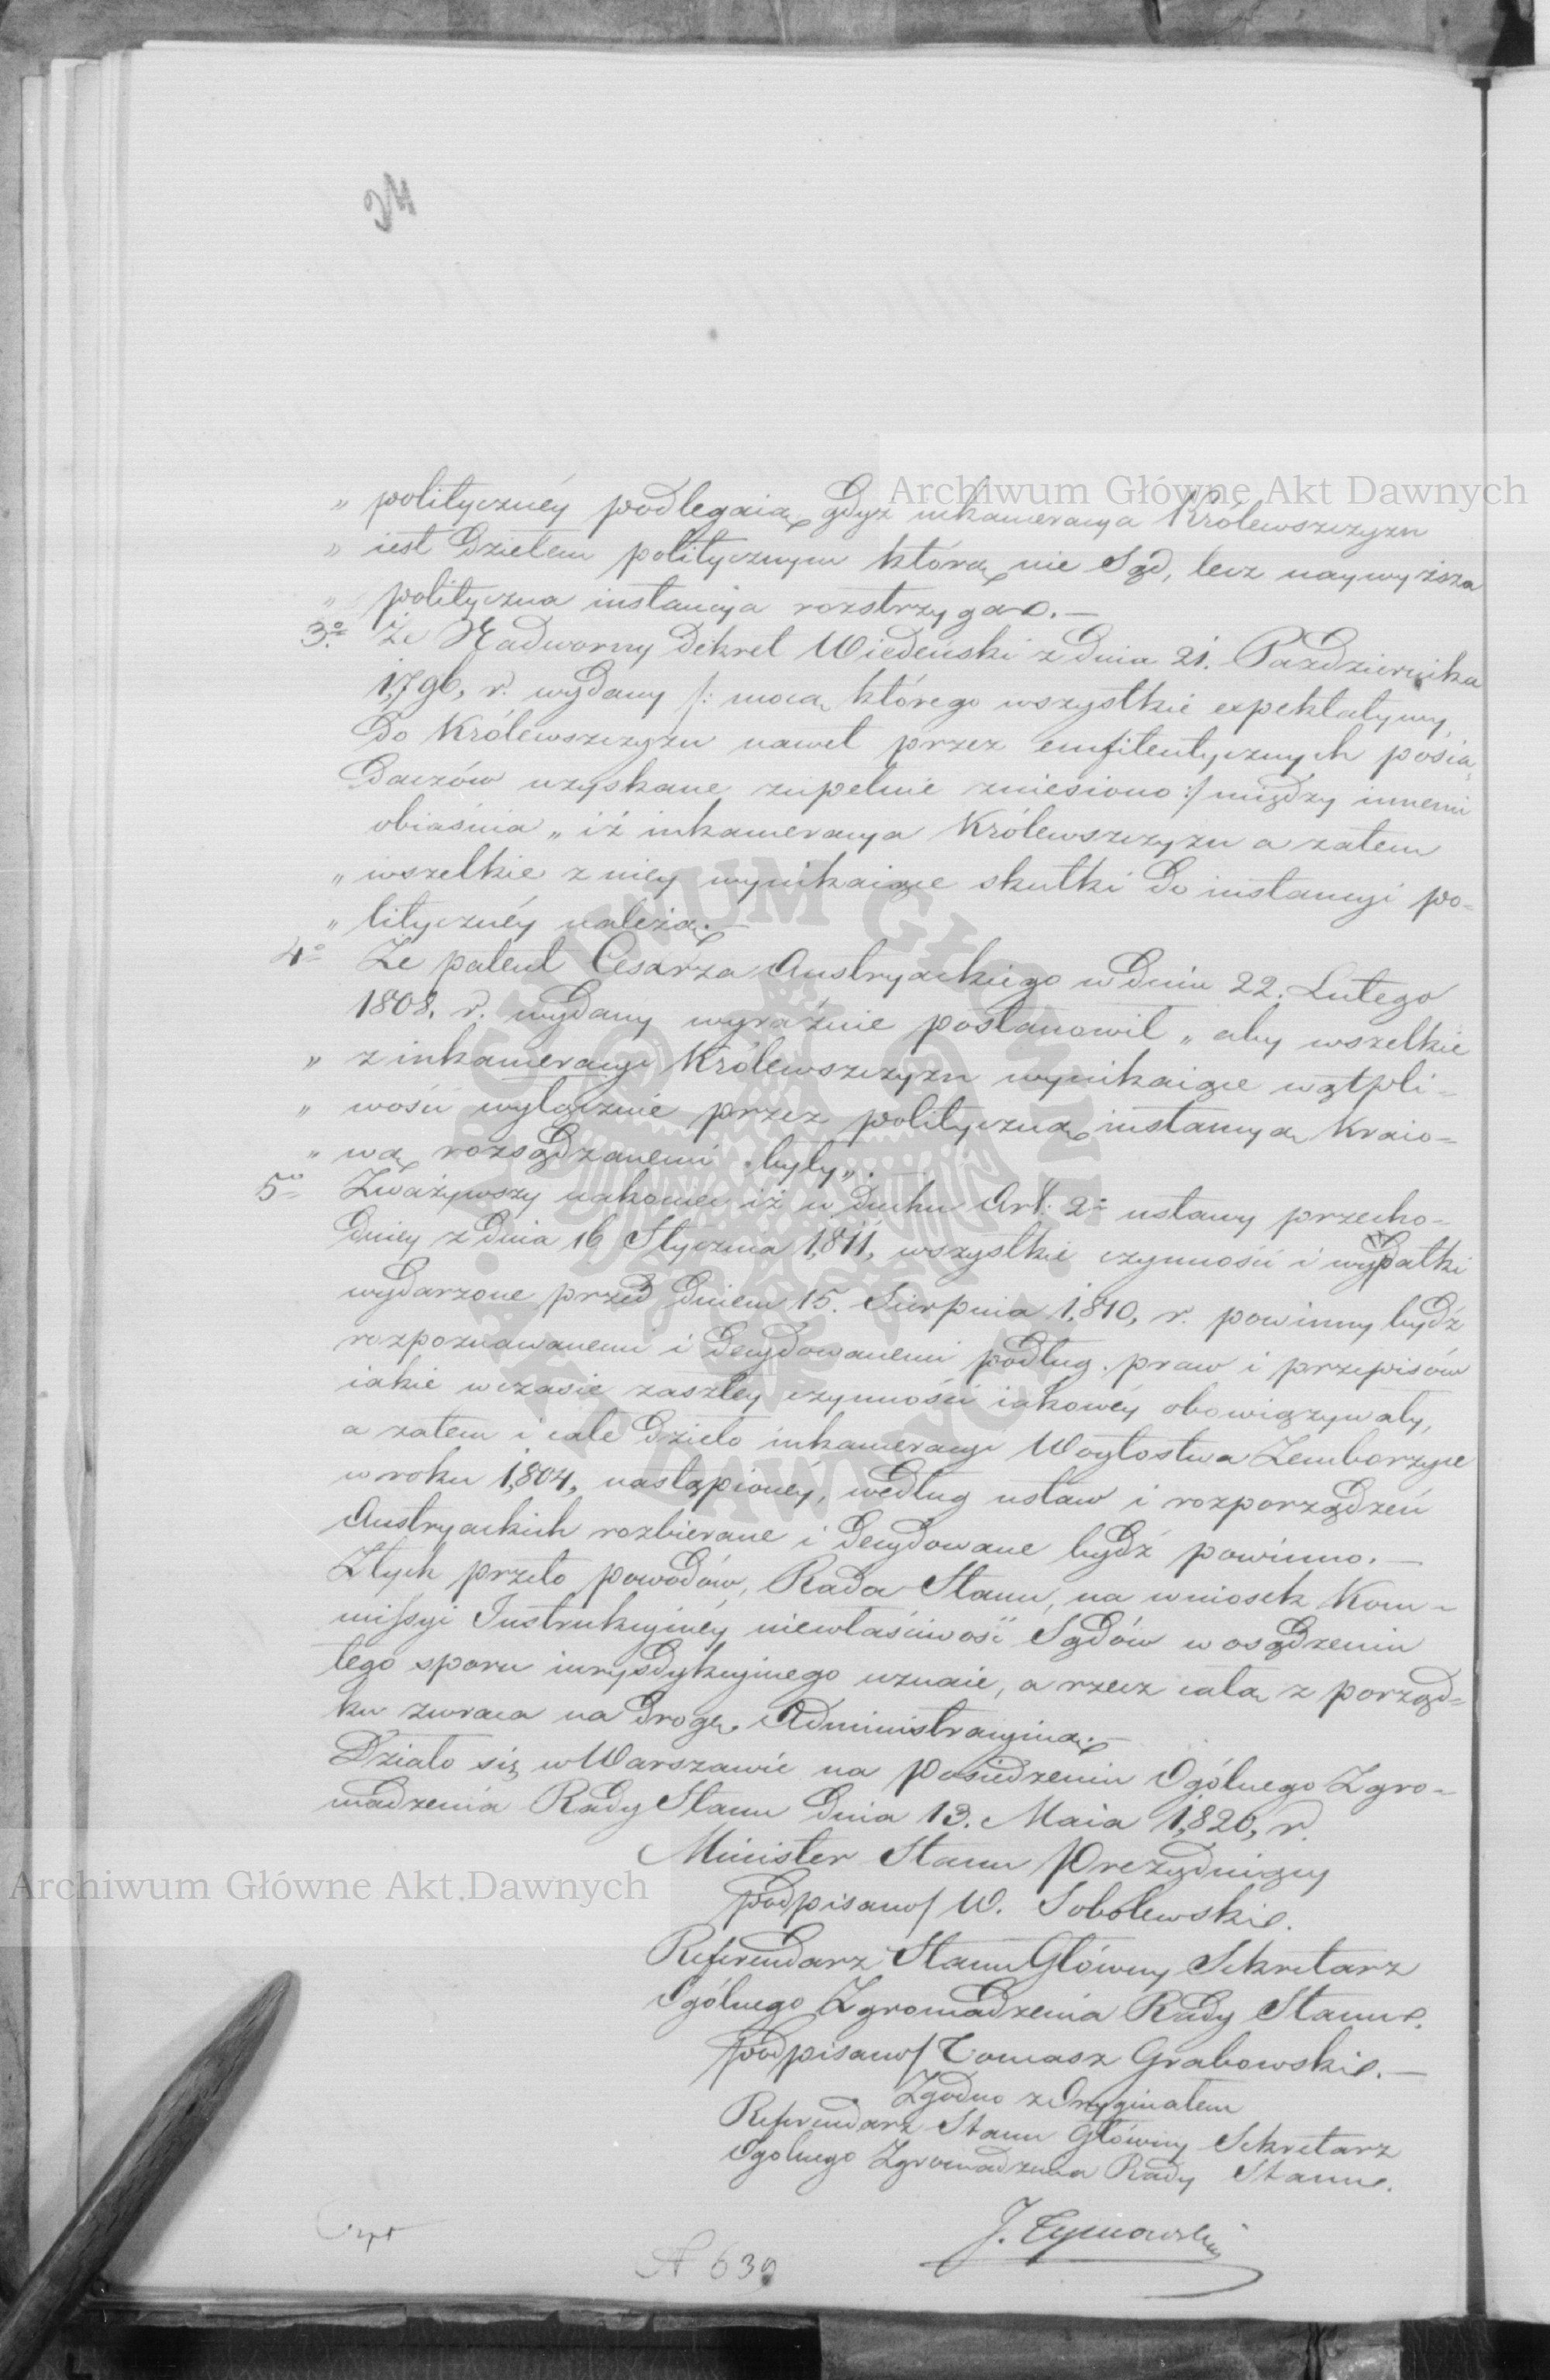 24
Archiwum Główne Akt Dawnych
„ polityczney podlegaią, gdyż inkameracya Królewszczyzn
„ iest dziełem politycznym którą nie Sąd, lecz naywyższa
„ polityczna instancya rozstrzyga.—
3o Że Nadworny dekret Wiedeński z dnia 21. Października
1,796, r. wydany /: mocą którego wszystkie expektatywy
do Królewszczyzn nawet przez emfiteutycznych posia-
daczów uzyskane zupełnie zniesiono :/ między innemi
obiaśnia „ iż inkameracya Królewszczyzn a zatem
„ wszelkie z niey wynikaiące skutki do instancyi po-
„ lityczney należą.—
4o Że patent Cesarza Austryackiego w dniu 22. Lutego
1808. r. wydany wyraźnie postanowił „ aby wszelkie
„ z inkameracyi Królewszczyzn wynikaiące wątpli-
„ wości wyłącznie przez polityczną instancyą Kraio-
„ wą rozsądzanemi były„.
5o Zważywszy nakoniec iż w duchu Art: 2o ustawy przecho-
dniey z dnia 16 Stycznia 1,811, wszystkie czynności i wypadki
wydarzone przed dniem 15. Sierpnia 1,810, r. powinny bydź
rozpoznawanemi i decydowanemi podług praw i przepisów
iakie w czasie zaszłey czynności iakowéy obowiązywały,
a zatem i całe dzieło inkameracyi Woytostwa Zemborzyce
w roku 1,804, nastąpioney, według ustaw i rozporządzeń
Austryackich rozbierane i decydowane bydź powinno.—
Z tych przeto powodów, Rada Stanu, na wniosek Kom-
missyi Instrukcyiney niewłaściwość Sądów w osądzeniu
tego sporu iurysdykcyinego uznaie, a rzecz całą z porząd-
ku zwraca na drogę Administracyiną.—
Działo się w Warszawie na Posiedzeniu Ogólnego Zgro-
madzenia Rady Stanu dnia 13. Maia 1,820, r.
Minister Stanu Prezyduiący
podpisano/ W. Sobolewski.
Referendarz Stanu Główny Sekretarz
Ogólnego Zgromadzenia Rady Stanu.
podpisano/ Tomasz Grabowski.—
Zgodno z Oryginałem
Referendarz Stanu Główny Sekretarz
Ogolnego Zgromadzenia Rady Stanu.
J. Tymowski
639
Archiwum Główne Akt Dawnych
ARCHIWUM GŁÓWNE AKT DAWNYCH